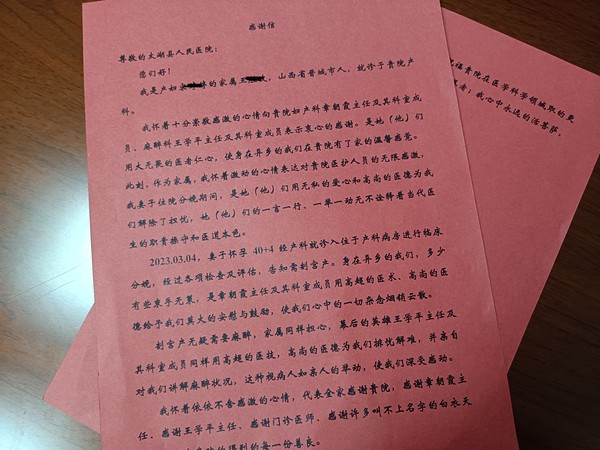 感谢信
尊敬的太湖县人民医院：
您们好！
我是产妇 的家属王 ，山西省晋城市人，就诊于贵院产
科。
我怀着十分崇敬感激的心情向贵院妇产科章朝霞主任及其科室成
员、麻醉科王学平主任及其科室成员表示衷心的感谢。是她（他）们
用大无畏的医者仁心，使身在异乡的我们在贵院有了家的温馨感觉。
此刻，作为家属，我怀着激动的心情表达对贵院医护人员的无限感激，
我妻子住院分娩期间，是她（他）们用无私的爱心和高尚的医德为我
们解除了担忧，她（他）们的一言一行、一举一动无不诠释着当代医
生的职责操守和医道本色。
2023.03.04，妻子怀孕 40+4 经产科就诊入住于产科病房进行临床
分娩，经过各项检查及评估，告知需剖宫产。身在异乡的我们，多少
有些束手无策，是章朝霞主任及其科室成员用高超的医术、高尚的医
德给予我们莫大的安慰与鼓励，使我们心中的一切杂念烟销云散。
剖宫产无疑需要麻醉，家属同样担心，幕后的英雄王学平主任及
其科室成员同样用高超的医技，高尚的医德为我们排忧解难，并亲自
对我们讲解麻醉状况，这种视病人如亲人的举动，使我们深受感动。
我怀着依依不舍感激的心情，代表全家感谢贵院，感谢章朝霞主
任、感谢王学平主任、感谢门诊医师、感谢许多叫不上名字的白衣天
得到的每一份善良。
祝福贵院在医学科学领域取的更
我心中永远的活菩萨，